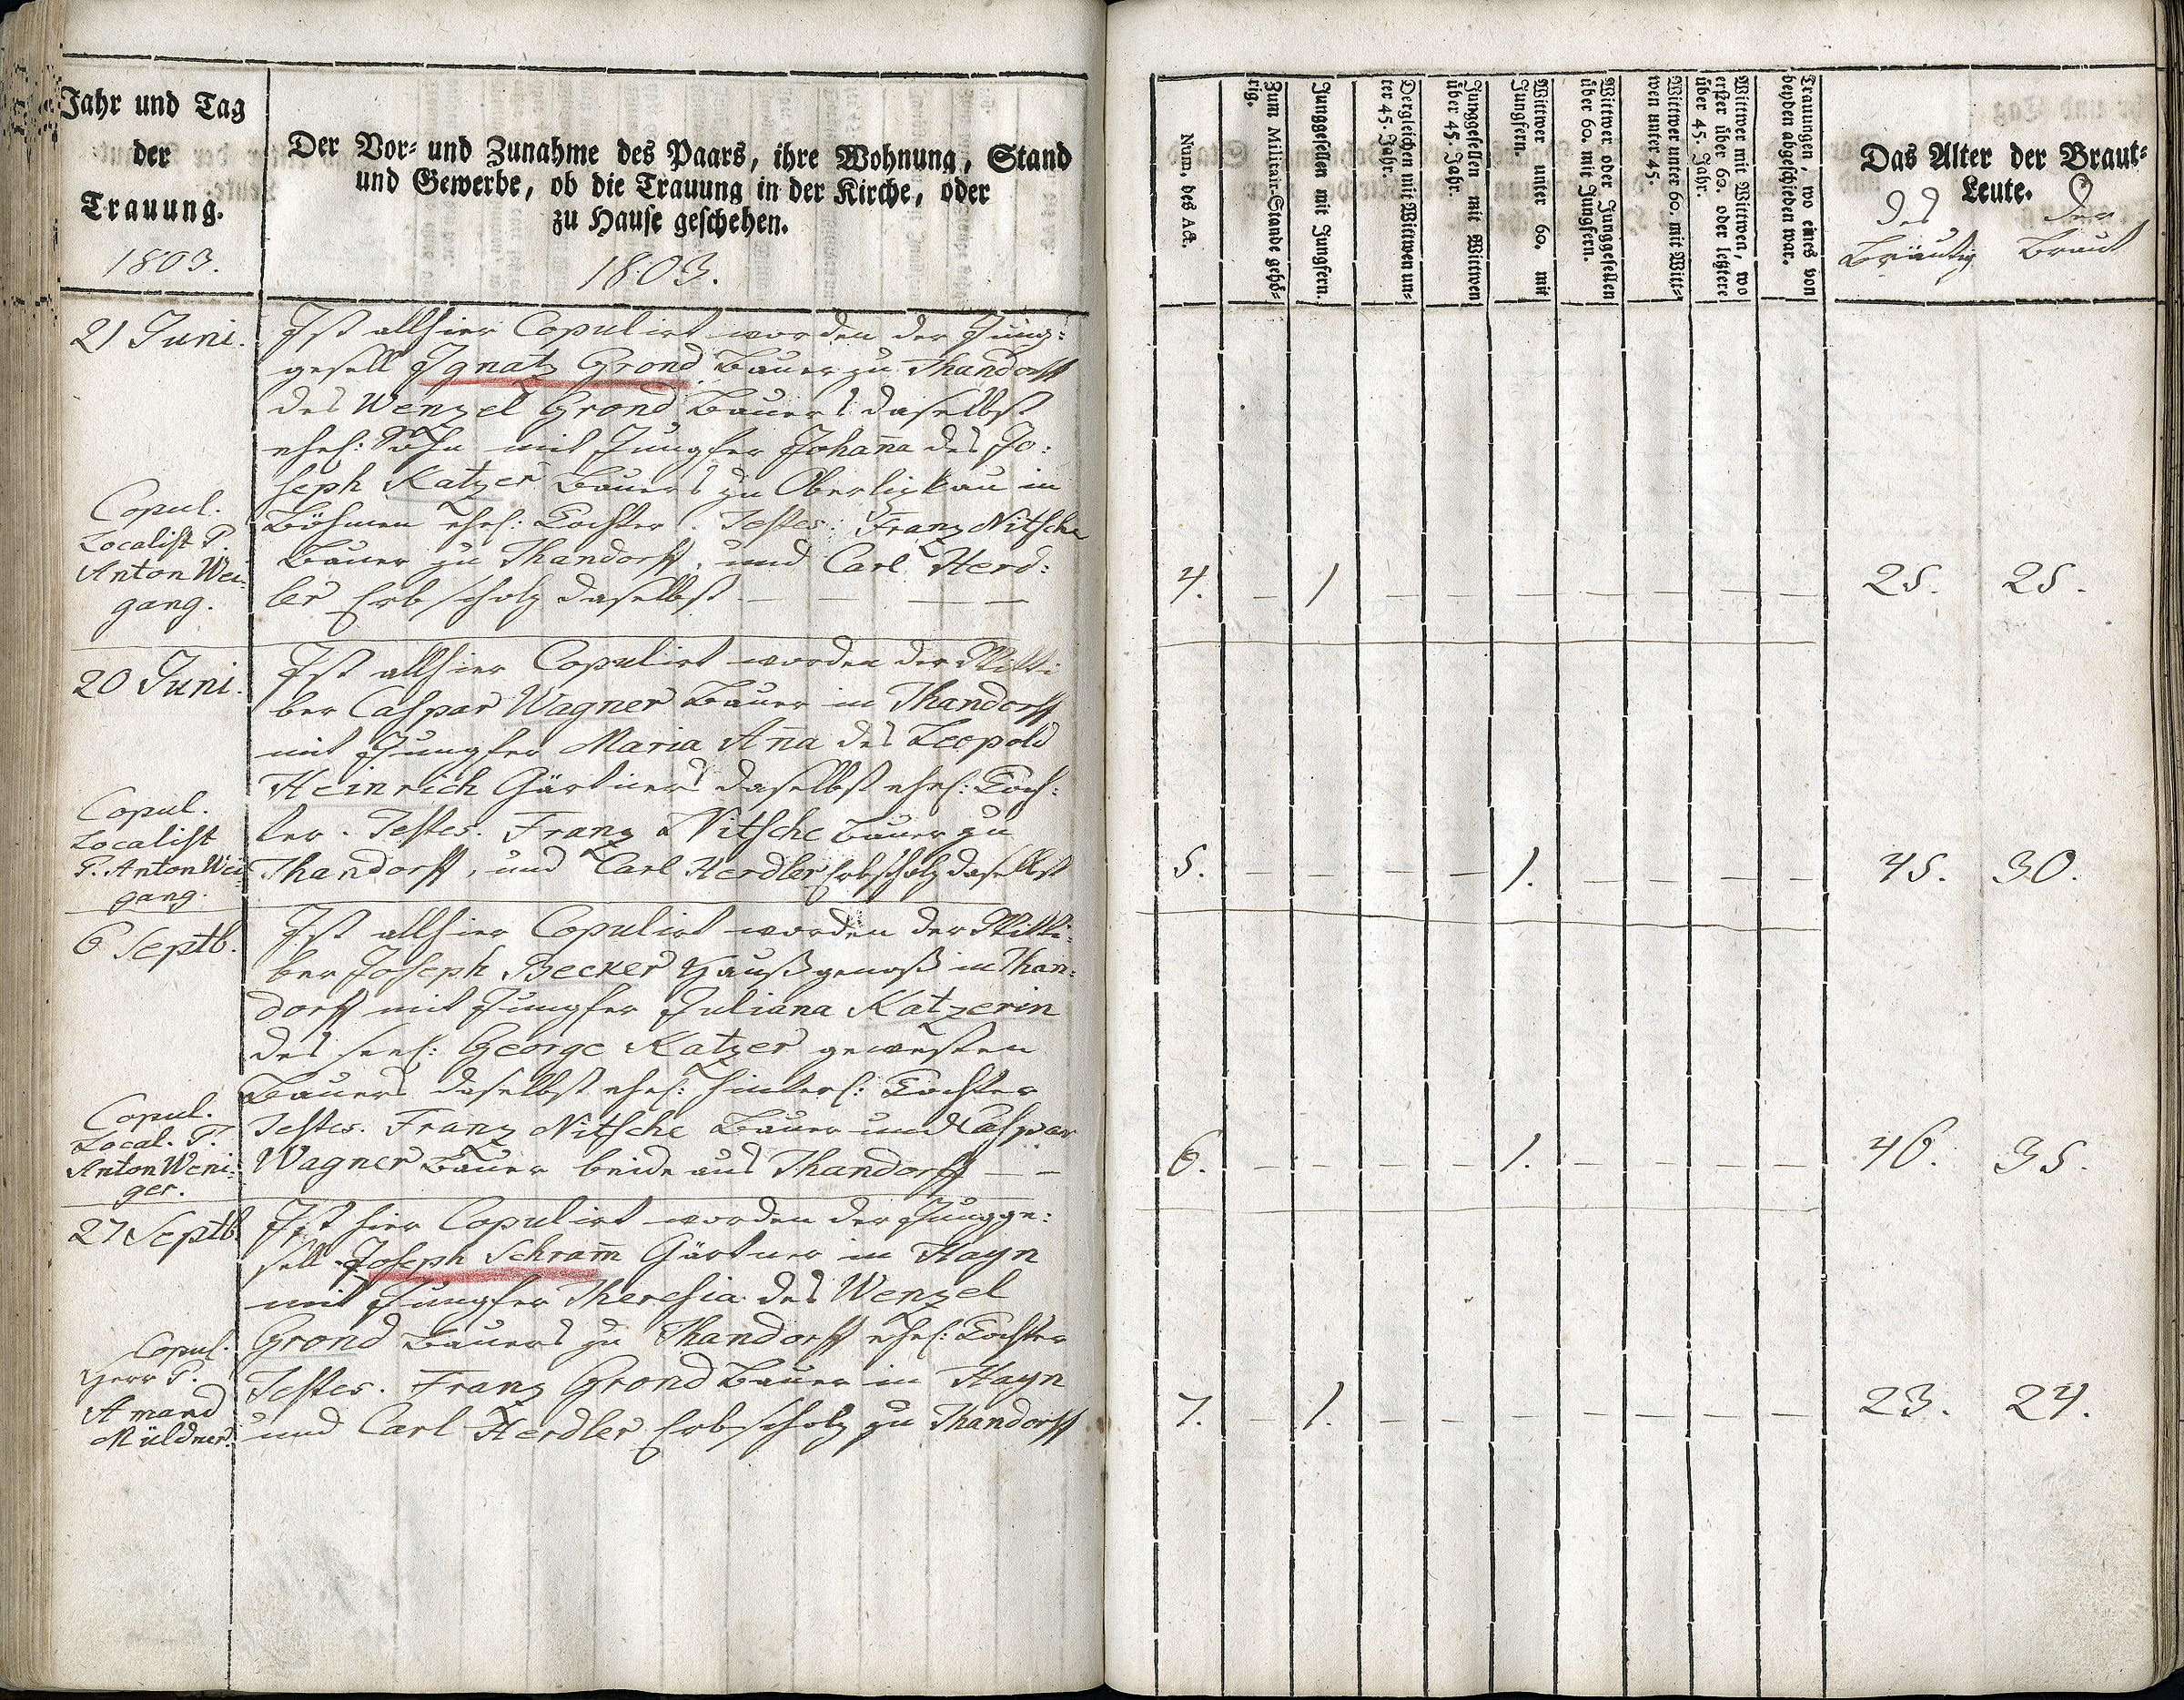 Jahr und Tag
der
Trauung.
1803.
Der Vor- und Zunahme des Paars, ihre Wohnung, Stand
und Gewerbe, ob die Trauung in der Kirche, oder
zu Hause geschehen.
1803.
21 Juni.
Ist allhier Copulirt worden der Jung:
gesell Ignatz Grond Bauer zu Thandorff
des Wenzel Grond Bauers daselbst
ehel: Sohn mit Jungfer Johan̄a des Jo:
seph Katzer Bauers zu Oberlipkau in
Böhmen ehel: Tochter. Testes: Franz Nitsche
Bauer zu Thandorff, und Carl Herd:
ler Erbscholz daselbst
Copul.
Localist P.
Anton Wei
gang.
20 Juni.
Ist allhier Copulirt worden der Witti
ber Caspar Wagner Bauer in Thandorff
mit Jungfer Maria An̄a des Leopold
Heinrich Gärtners daselbst ehel: Toch:
ter. Testes. Franz Nitsche Bauer zu
Thandorff, und Carl Herdler Erbscholz daselbst
Copul.
Localist
P. Anton Wei
gang.
6 Septb.
Ist allhier Copulirt worden der Witti:
ber Joseph Becker Haußgenoß in Than:
dorff mit Jungfer Juliana Katzerin
des seel: George Katzer gewesten
Bauers daselbst ehel: hinterl: Tochter
Testes. Franz Nitsche Bauer und Caspar
Wagner Bauer beide aus Thandorff
Copul.
Local. P.
Anton Weni:
ger.
27 Septb.
Ist hier Copulirt worden der Jungge:
sell Joseph Schram̄ Gärtner in Hayn
mit Jungfer Theresia des Wenzel
Grond Bauers zu Thandorff ehel: Tochter
Testes. Franz Grond Bauer in Hayn
und Carl Herdler Erbscholz zu Thandorff
Copul.
Herr P.
Amand
Müldner.
Num. des Act.
Zum Militair-Stande gehö-
rig.
Junggesellen mit Jungfern.
Dergleichen mit Wittwen un-
ter 45. Jahr.
Junggesellen mit Wittwen
über 45. Jahr.
Wittwer unter 60. mit
Jungfern.
Wittwer oder Junggesellen
über 60. mit Jungfern.
Wittwer unter 60. mit Witt-
wen unter 45.
Wittwer mit Wittwen, wo
erster über 60. oder letztere
über 45. Jahr.
Trauungen, wo eines von
beyden abgeschieden war.
Das Alter der Braut-
Leute.
des
Bräutig
der
Braut
4. – 1 – – – – – – – 25. 25.
5. – – – – 1. – – – – 45. 30.
6. – – – – 1. – – – – 46. 35.
7. – 1. – – – – – – – 23. 24.